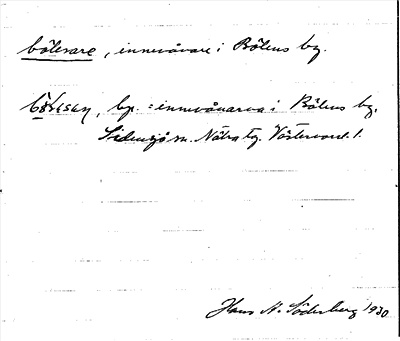 bölesare, innevåvare i Bölens by.
bölesan, bp. = innevånarna i Bölens by,
Sidensjö sn. Nätra tg. Västernorrl. l.
Hans N. Söderberg 1930